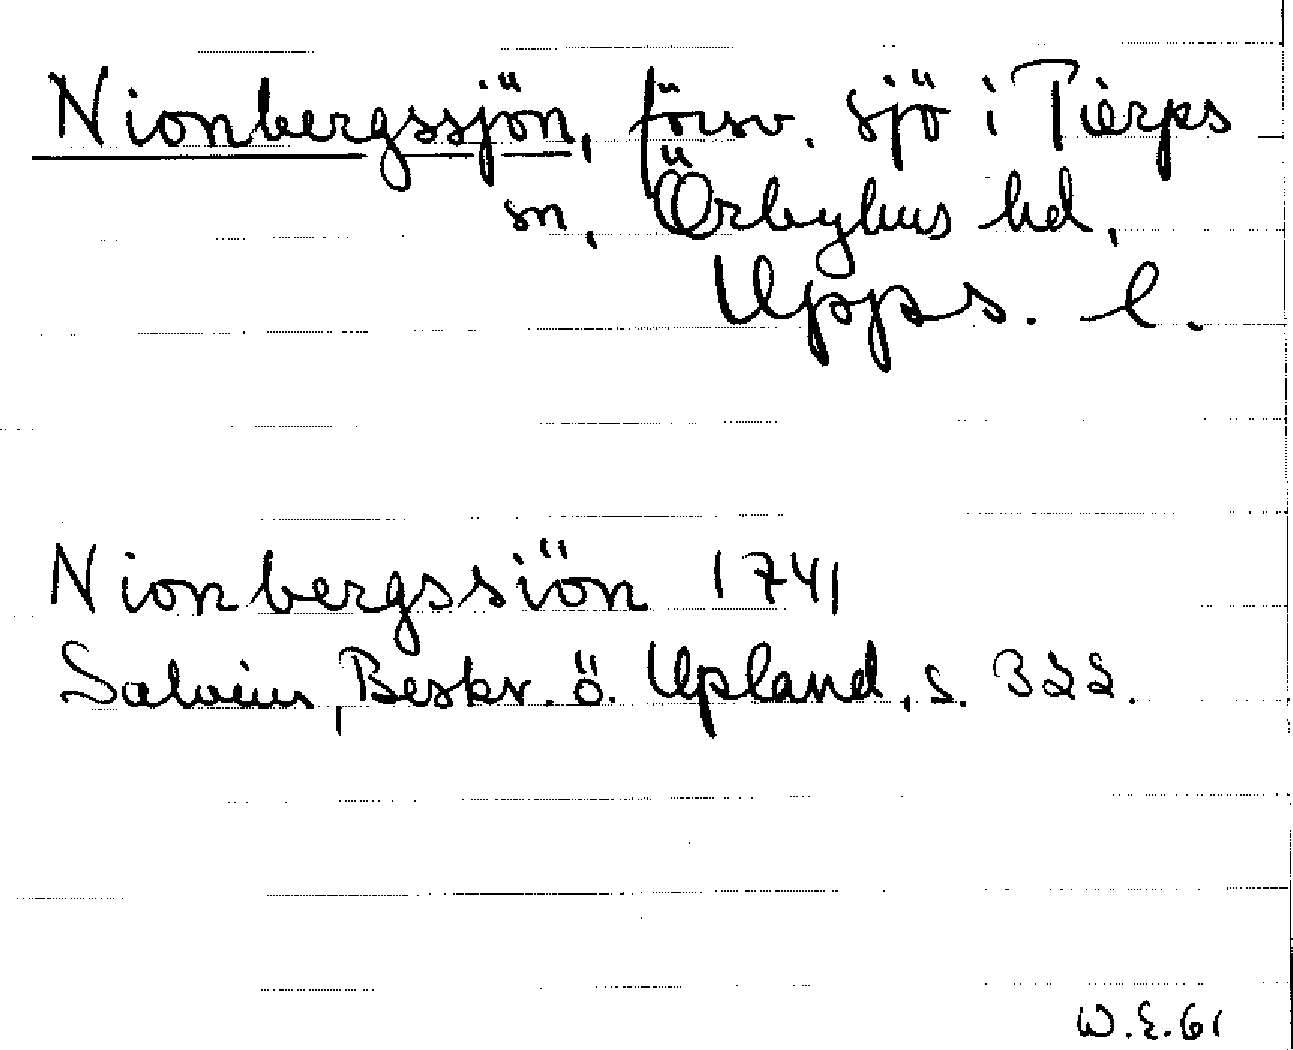 Nionbergssjön, försv. sjö i Tierps
sn, Örbyhus hd,
Upps. l.
Nionbergssiön 1741
Salvius, Beskr. ö. Upland, s. 322.
W.E.61